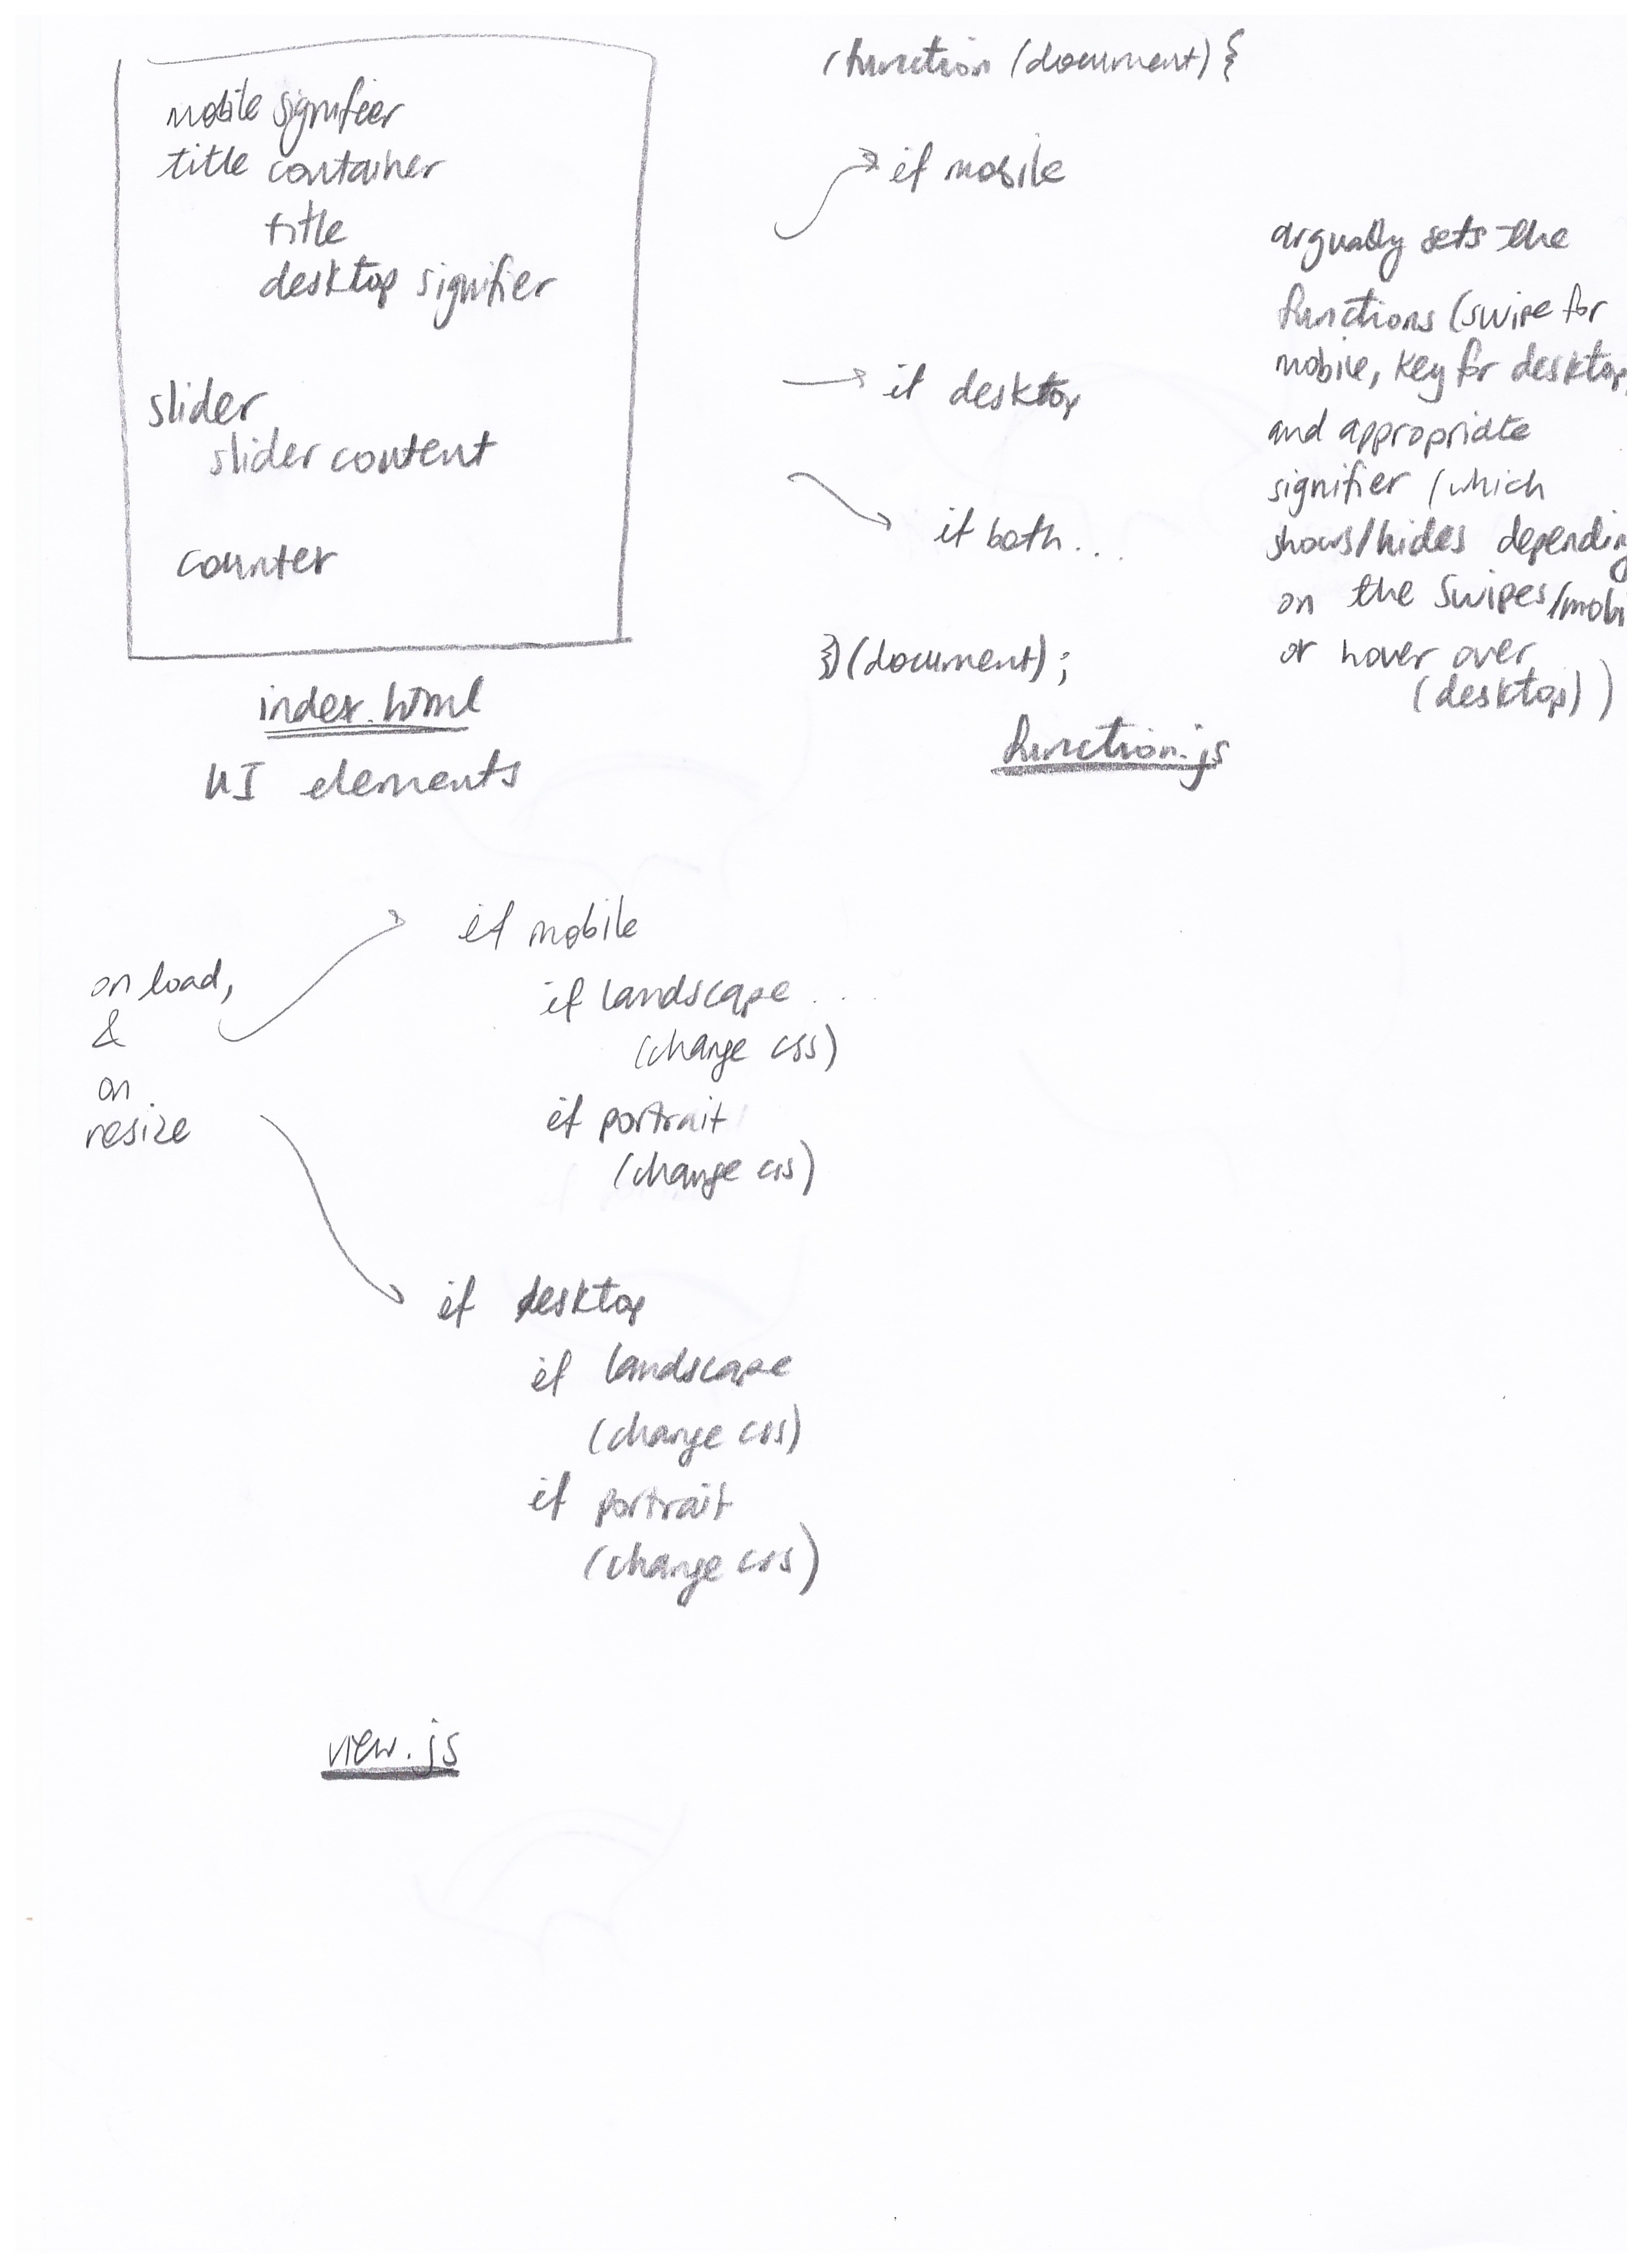 mobile signifier
title container
title
desktop signifier
slider
slider content
counter
index.html
UI elements
(function (document) {
if mobile
if desktop
if both...
})(document);
function.js
arguably sets the
functions (swipe for
mobile, key for desktop,
and appropriate
signifier (which
shows/hides dependin
on the swipes/mobi
or hover over
(desktop))
on load,
&
on
resize
if mobile
if landscape...
(change css)
if portrait
(change css)
if desktop
if landscape
(change css)
if portrait
(change css)
view.js